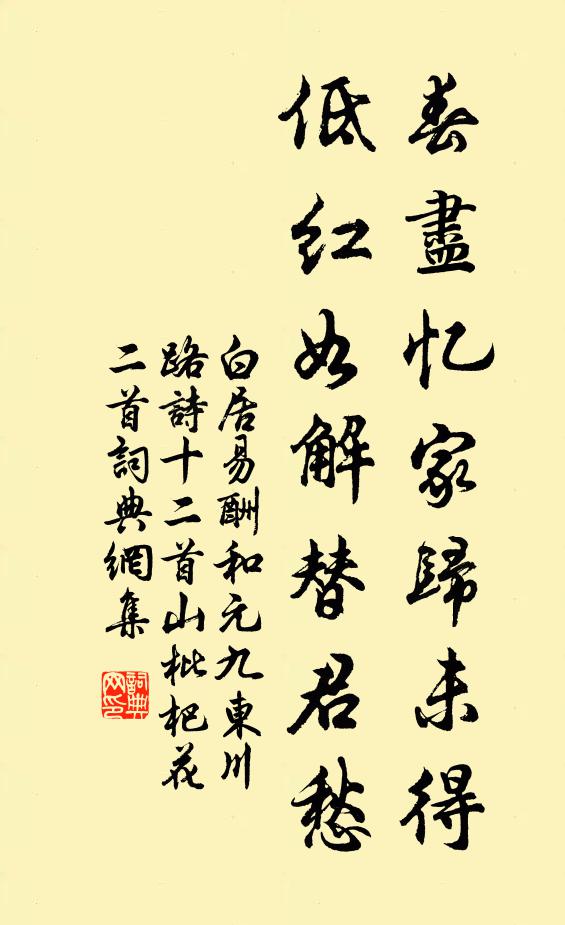 春盡忆家歸未得
低红如解替君愁
白居易酬和元九東川
路詩十二首山枇杷花
二首詞典網集
詞典网印